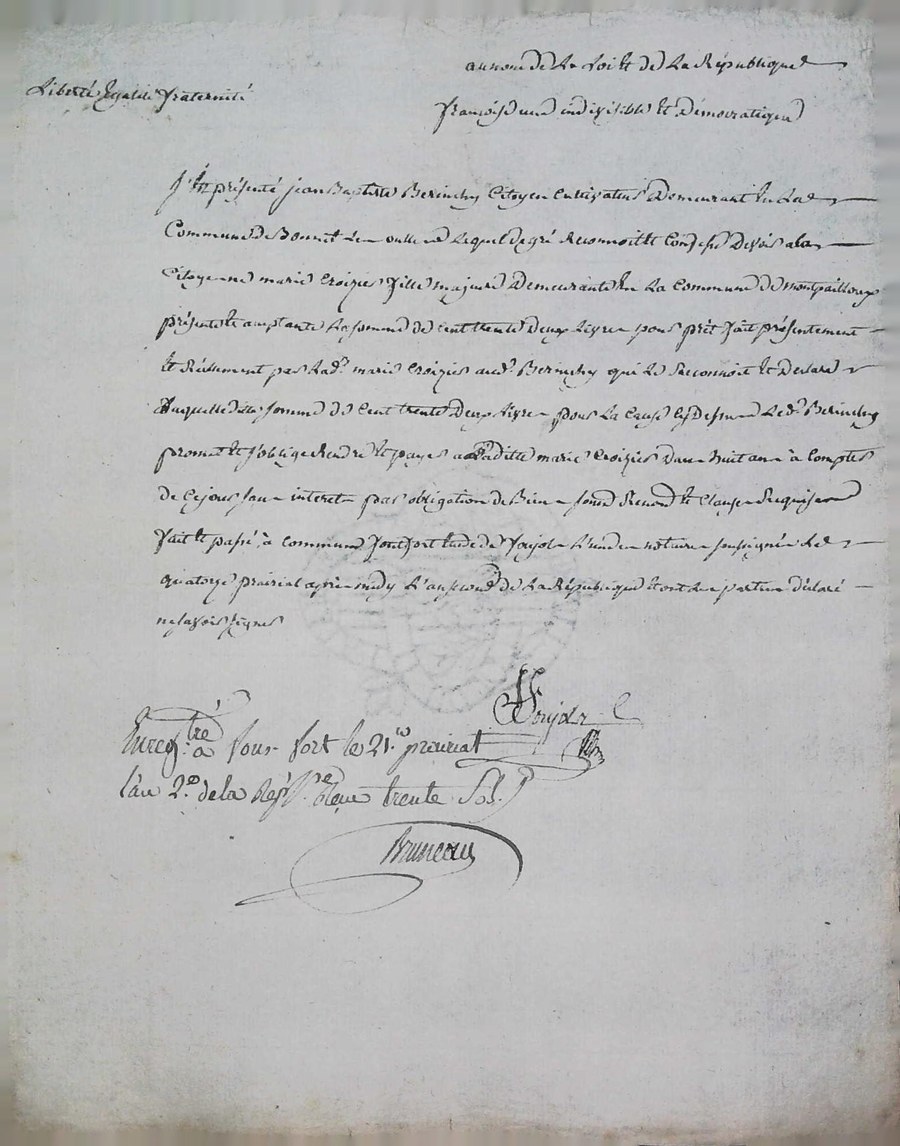 au nom de La Loi et de La République
Liberté Egalité fraternité
françoise une indivisible et Démocratique
présenté jean Baptiste Citoyen Cultivateur Demeurant En La
Commune de Bonnet Lequel de gré Reconnoit et Confesse Devoir a la
Citoyenne marie Croizier fille majeure Demeurante En La Commune de
présente et acceptante La somme de cent trente Deux Livres pour prêt fait présentement
et Réellement par Lad.e marie Croizier aud. qui Le Reconnoit et Declare
Laquelle dite somme de Cent trente Deux Livres pour La Cause Led.
promet et s'oblige Rendre et payer a Laditte marie Croizier Dans huit ans à Compter
de Ce jour sans interet par obligation de Biens Renon et Clauses Requises
fait et passé à commune fonfort Etude de Soujol L'un des notaires soussignés Le
quatorze prairial après midy L'an second de La République et ont Les parties déclaré
ne savoir signer
Soujol
Enreg.tré à fons-fort le 21. prairial
l'an 2.e de la Rép. Reçu trente Sols.
Bruneau